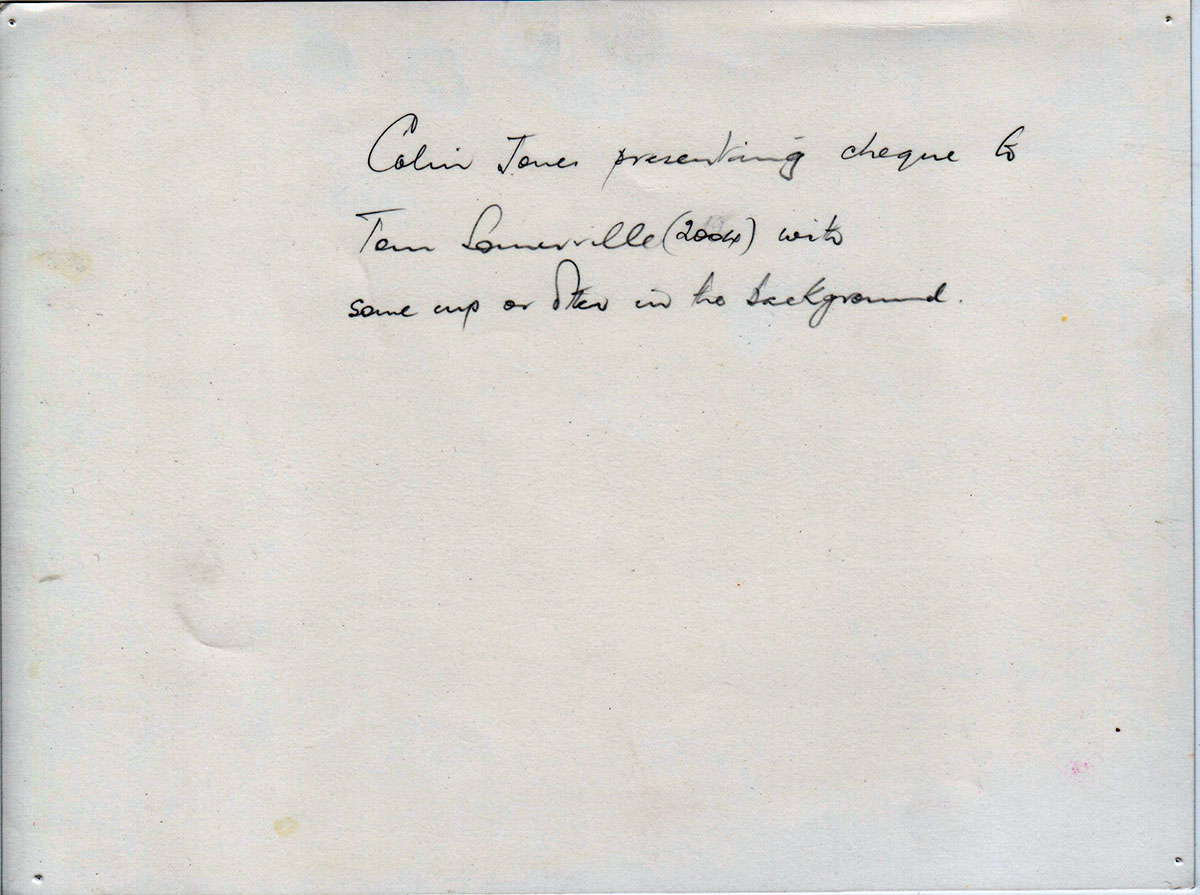 Colin Jones presenting cheque to
Tom Somerville (2004) with
some cup or other in the background.